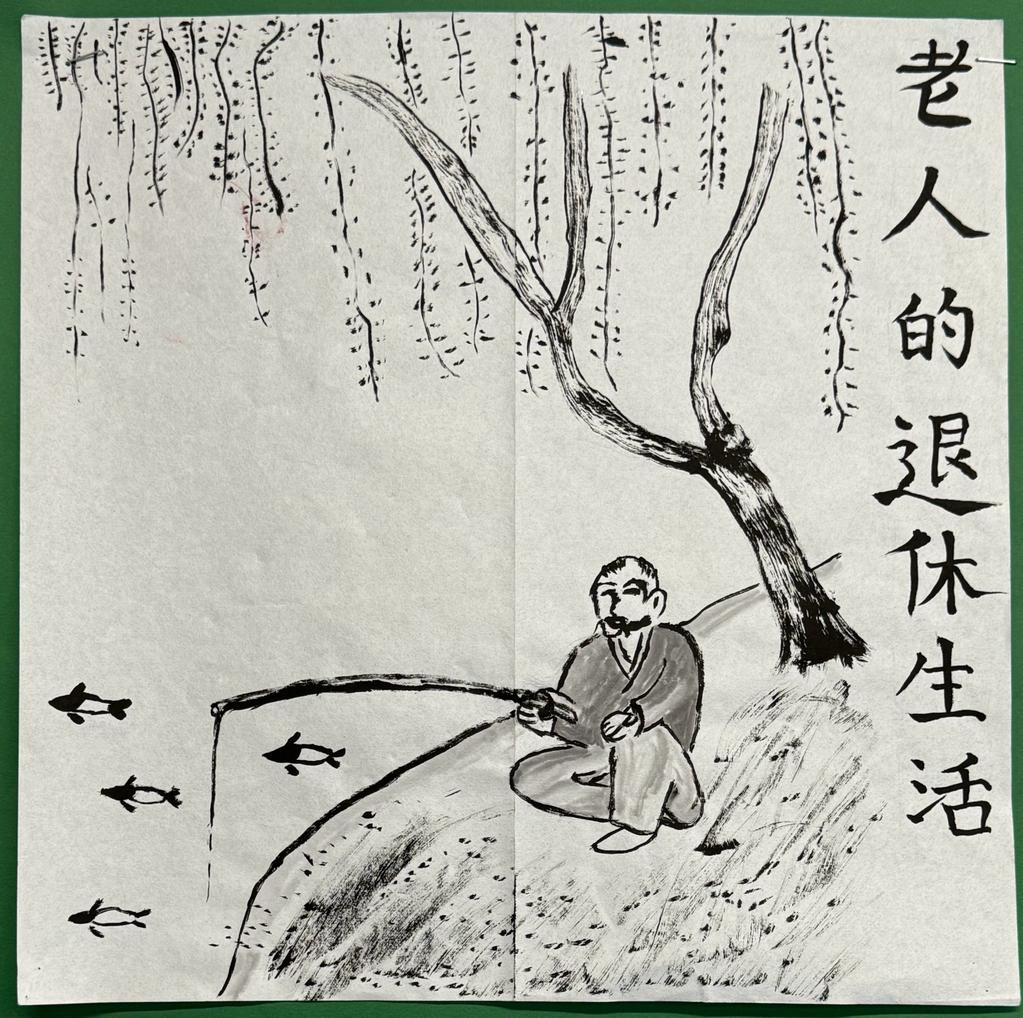 老人的退休生活